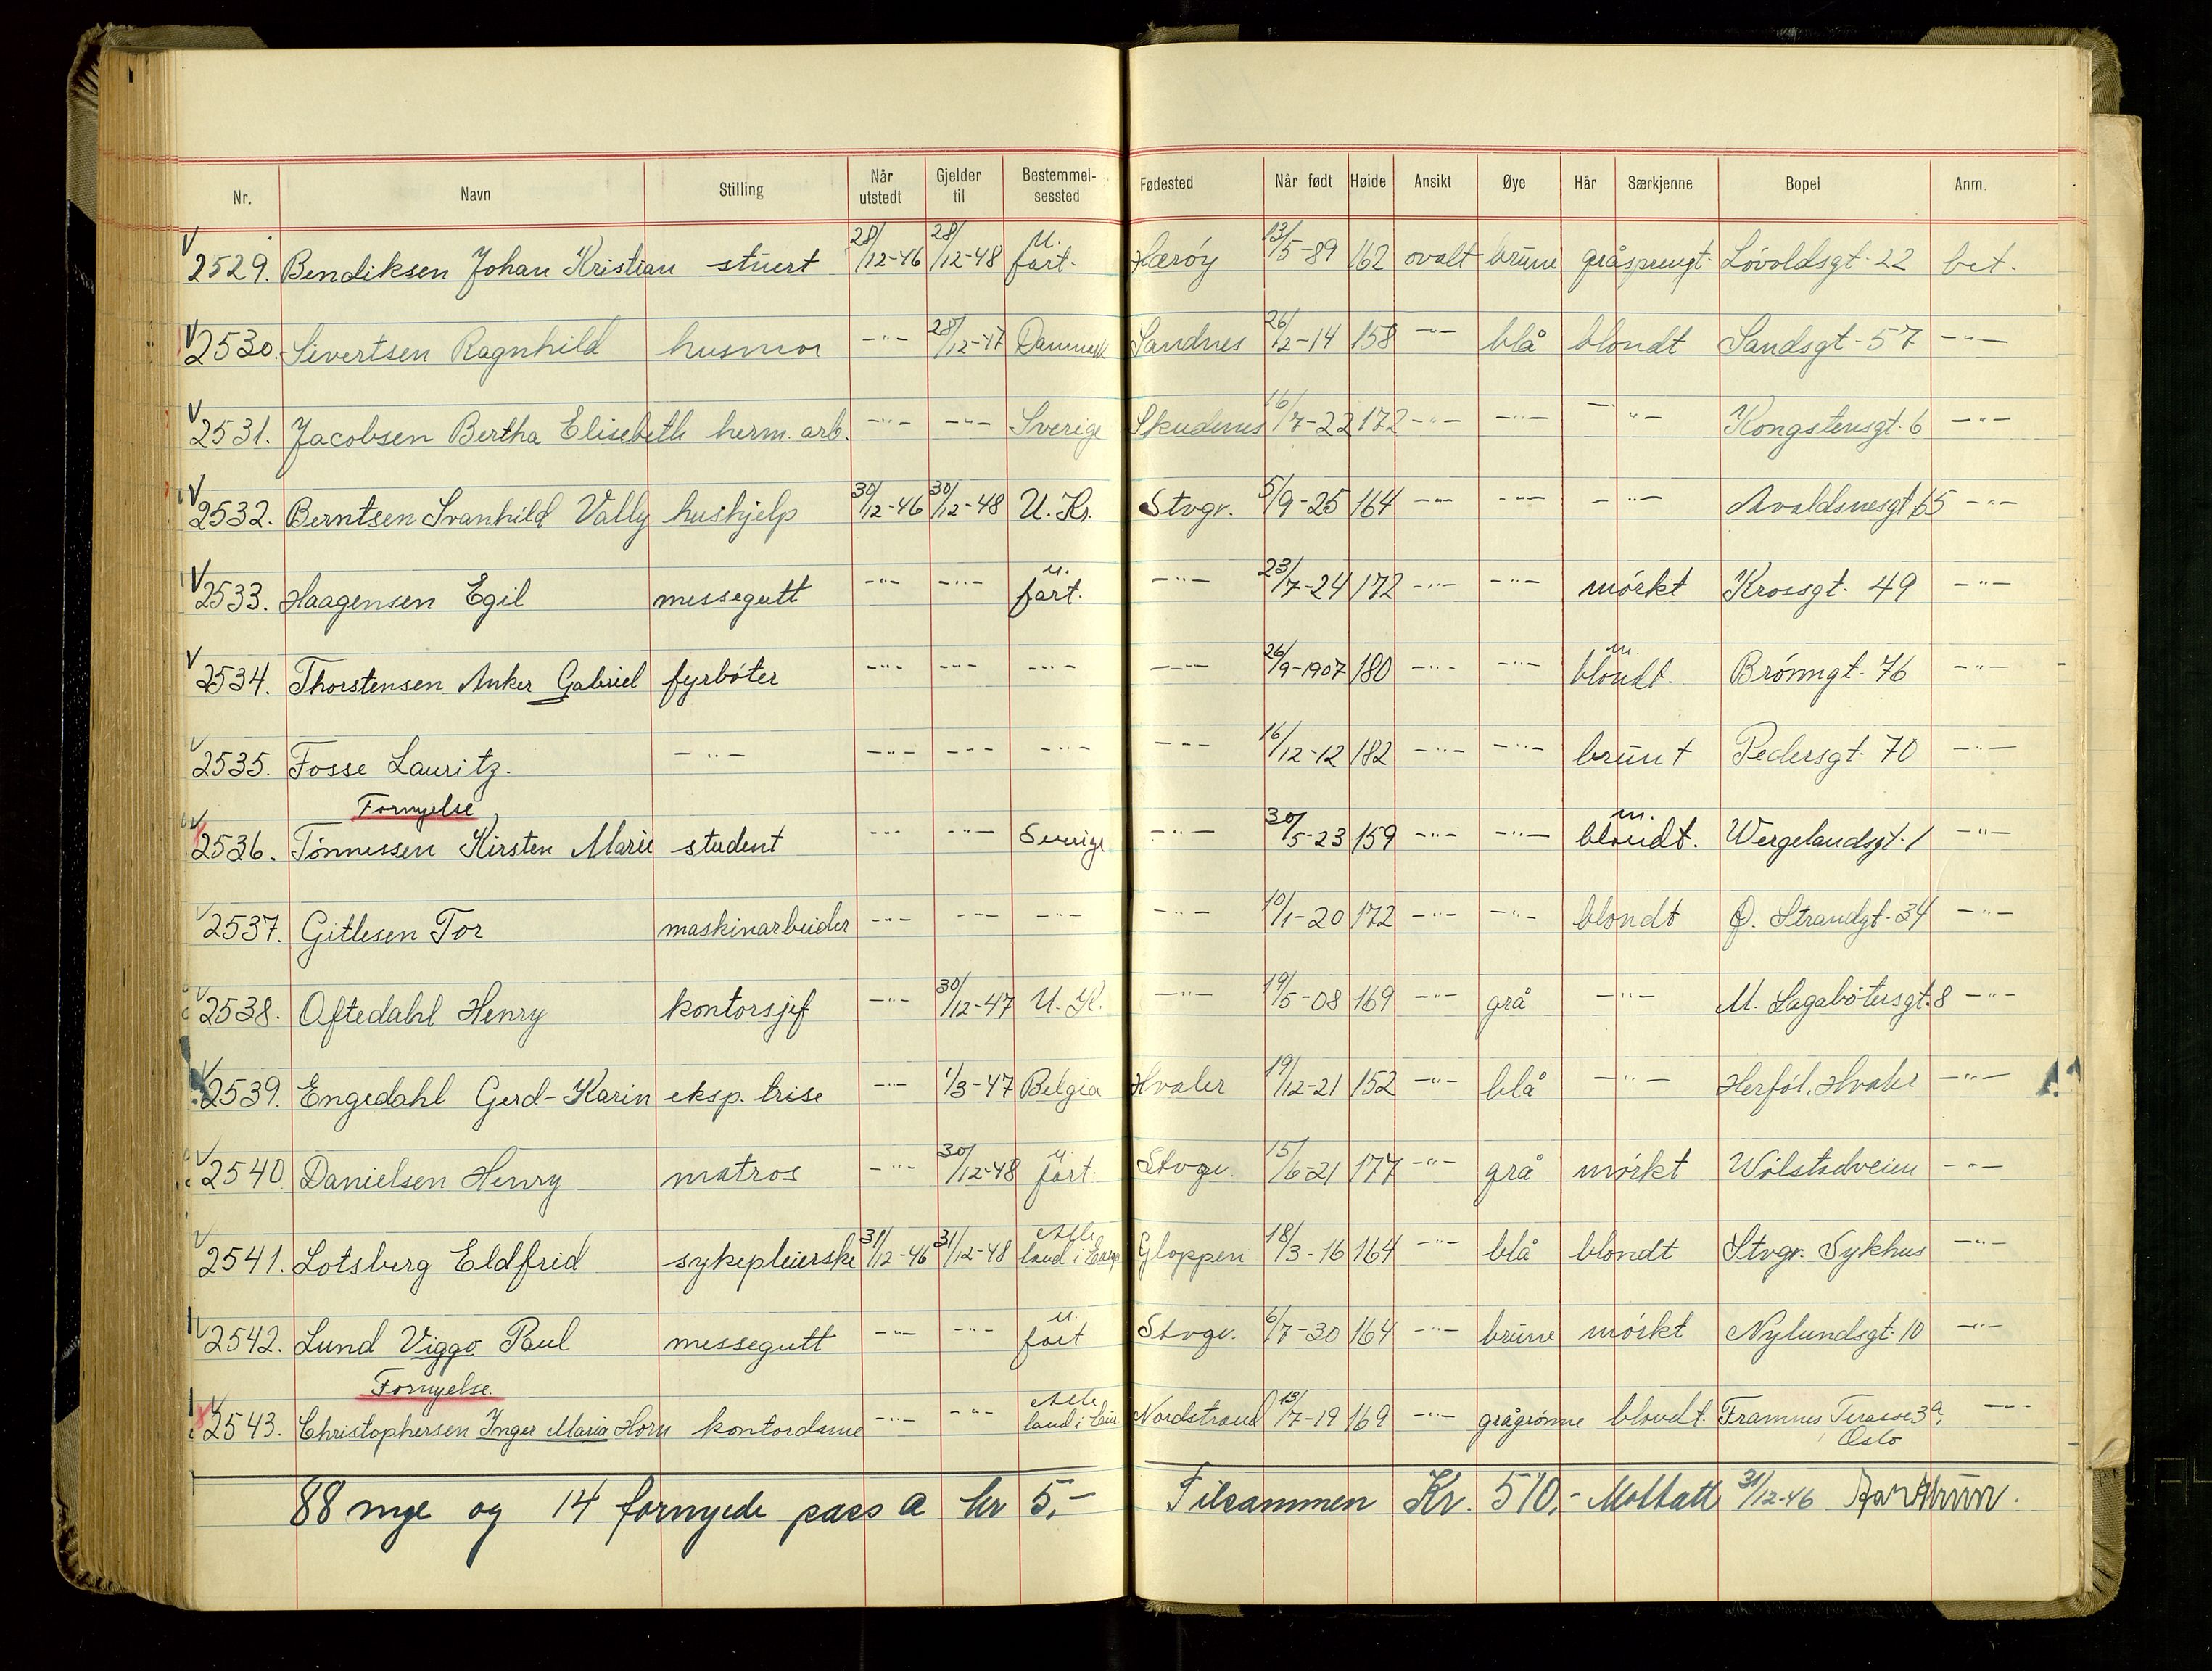 Nr. Navn Stilling Når utstedt Gjelder til Bestemmel-sessted Fødested Når født Høide Ansikt Øye Hår Særkjenne Bopel Anm.
2529. Bendiksen Johan Kristian stuert 28/12-46 28/12-48 u. fart. Herøy 13/5-89 162 ovalt brune gråsprengt. Løvoldsgt. 22 bet.
2530. Sivertsen Ragnhild husmor -"- 28/12-47 Danmark Sandnes 26/2-14 158 -"- blå blondt Sandsgt. 57 -"-
2531. Jacobsen Bertha Elisebeth herm. arb. -"- -"- Sverige Skudenes 16/7-22 172 -"- -"- -"- Kongstensgt. 6 -"-
2532. Berntsen Svanhild Vally hushjelp 30/12-46 30/12-48 U. K. Stvgr. 5/9-25 164 -"- -"- -"- Avaldsnesgt 65 -"-
2533. Haagensen Egil messegutt -"- -"- u. fart. -"- 23/7-24 172 -"- -"- mörkt Krossgt. 49 -"-
2534. Thorstensen Anker Gabriel fyrböter -"- -"- -"- -"- 26/9-1907 180 -"- -"- m. blondt. Brönngt. 76 -"-
2535. Fosse Lauritz. -"- -"- -"- -"- -"- 16/12-12 182 -"- -"- brunt Pedersgt. 70 -"-
Fornyelse
2536. Tönnessen Kirsten Marie student -"- -"- Sverige -"- 30/5-23 159 -"- -"- m. blondt. Wergelandsgt. 1 -"-
2537. Gitlesen Tor maskinarbeider -"- -"- -"- -"- 10/1-20 172 -"- -"- blondt Ø. Strandgt. 34 -"-
2538. Oftedahl Henry kontorsjef -"- 30/12-47 U. K. -"- 19/5-08 169 -"- grå -"- M. Lagabötersgt. 8 -"-
2539. Engedahl Gerd-Karin eksp. trise -"- 1/3-47 Belgia Hvaler 19/12-21 152 -"- blå -"- Herföl, Hvaler -"-
2540. Danielsen Henry matros -"- 30/12-48 u. fart. Stvgr. 15/6-21 177 -"- grå mörkt Wålstadveien -"-
2541. Lotsberg Eldfrid sykepleierske 31/12-46 31/12-48 Alle land i Europ Gloppen 18/3-16 164 -"- blå blondt Stvgr. Sykhus -"-
2542. Lund Viggo Paul messegutt -"- -"- u. fart Stvgr. 6/7-30 164 -"- brune mörkt Nylundsgt. 10 -"-
Fornyelse.
2543. Christophersen Inger Maria Horn kontordame -"- -"- Alle land i Eur. Nordstrand 13/7-19 169 -"- grågrönne blondt. Framnes Terasse 3a, Oslo -"-
88 nye og 14 fornyede pass a kr 5,- Tilsammen Kr. 510,- Mottatt 31/12-46